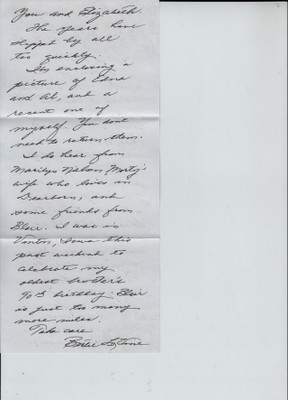 You and Elizabeth.
The years have
slipped by all
too quickly.
I'm enclosing a
picture of Edna
and Al, and a
recent one of
myself. You don't
need to return them.
I do hear from
Marilyn Nelson, Morty's
wife who lives in
Dearborn, and
some friends from
Blair. I was in
Vinton, Iowa this
past weekend to
celebrate my
oldest brother's
90th birthday. Blair
is just too many
more miles.
Take care